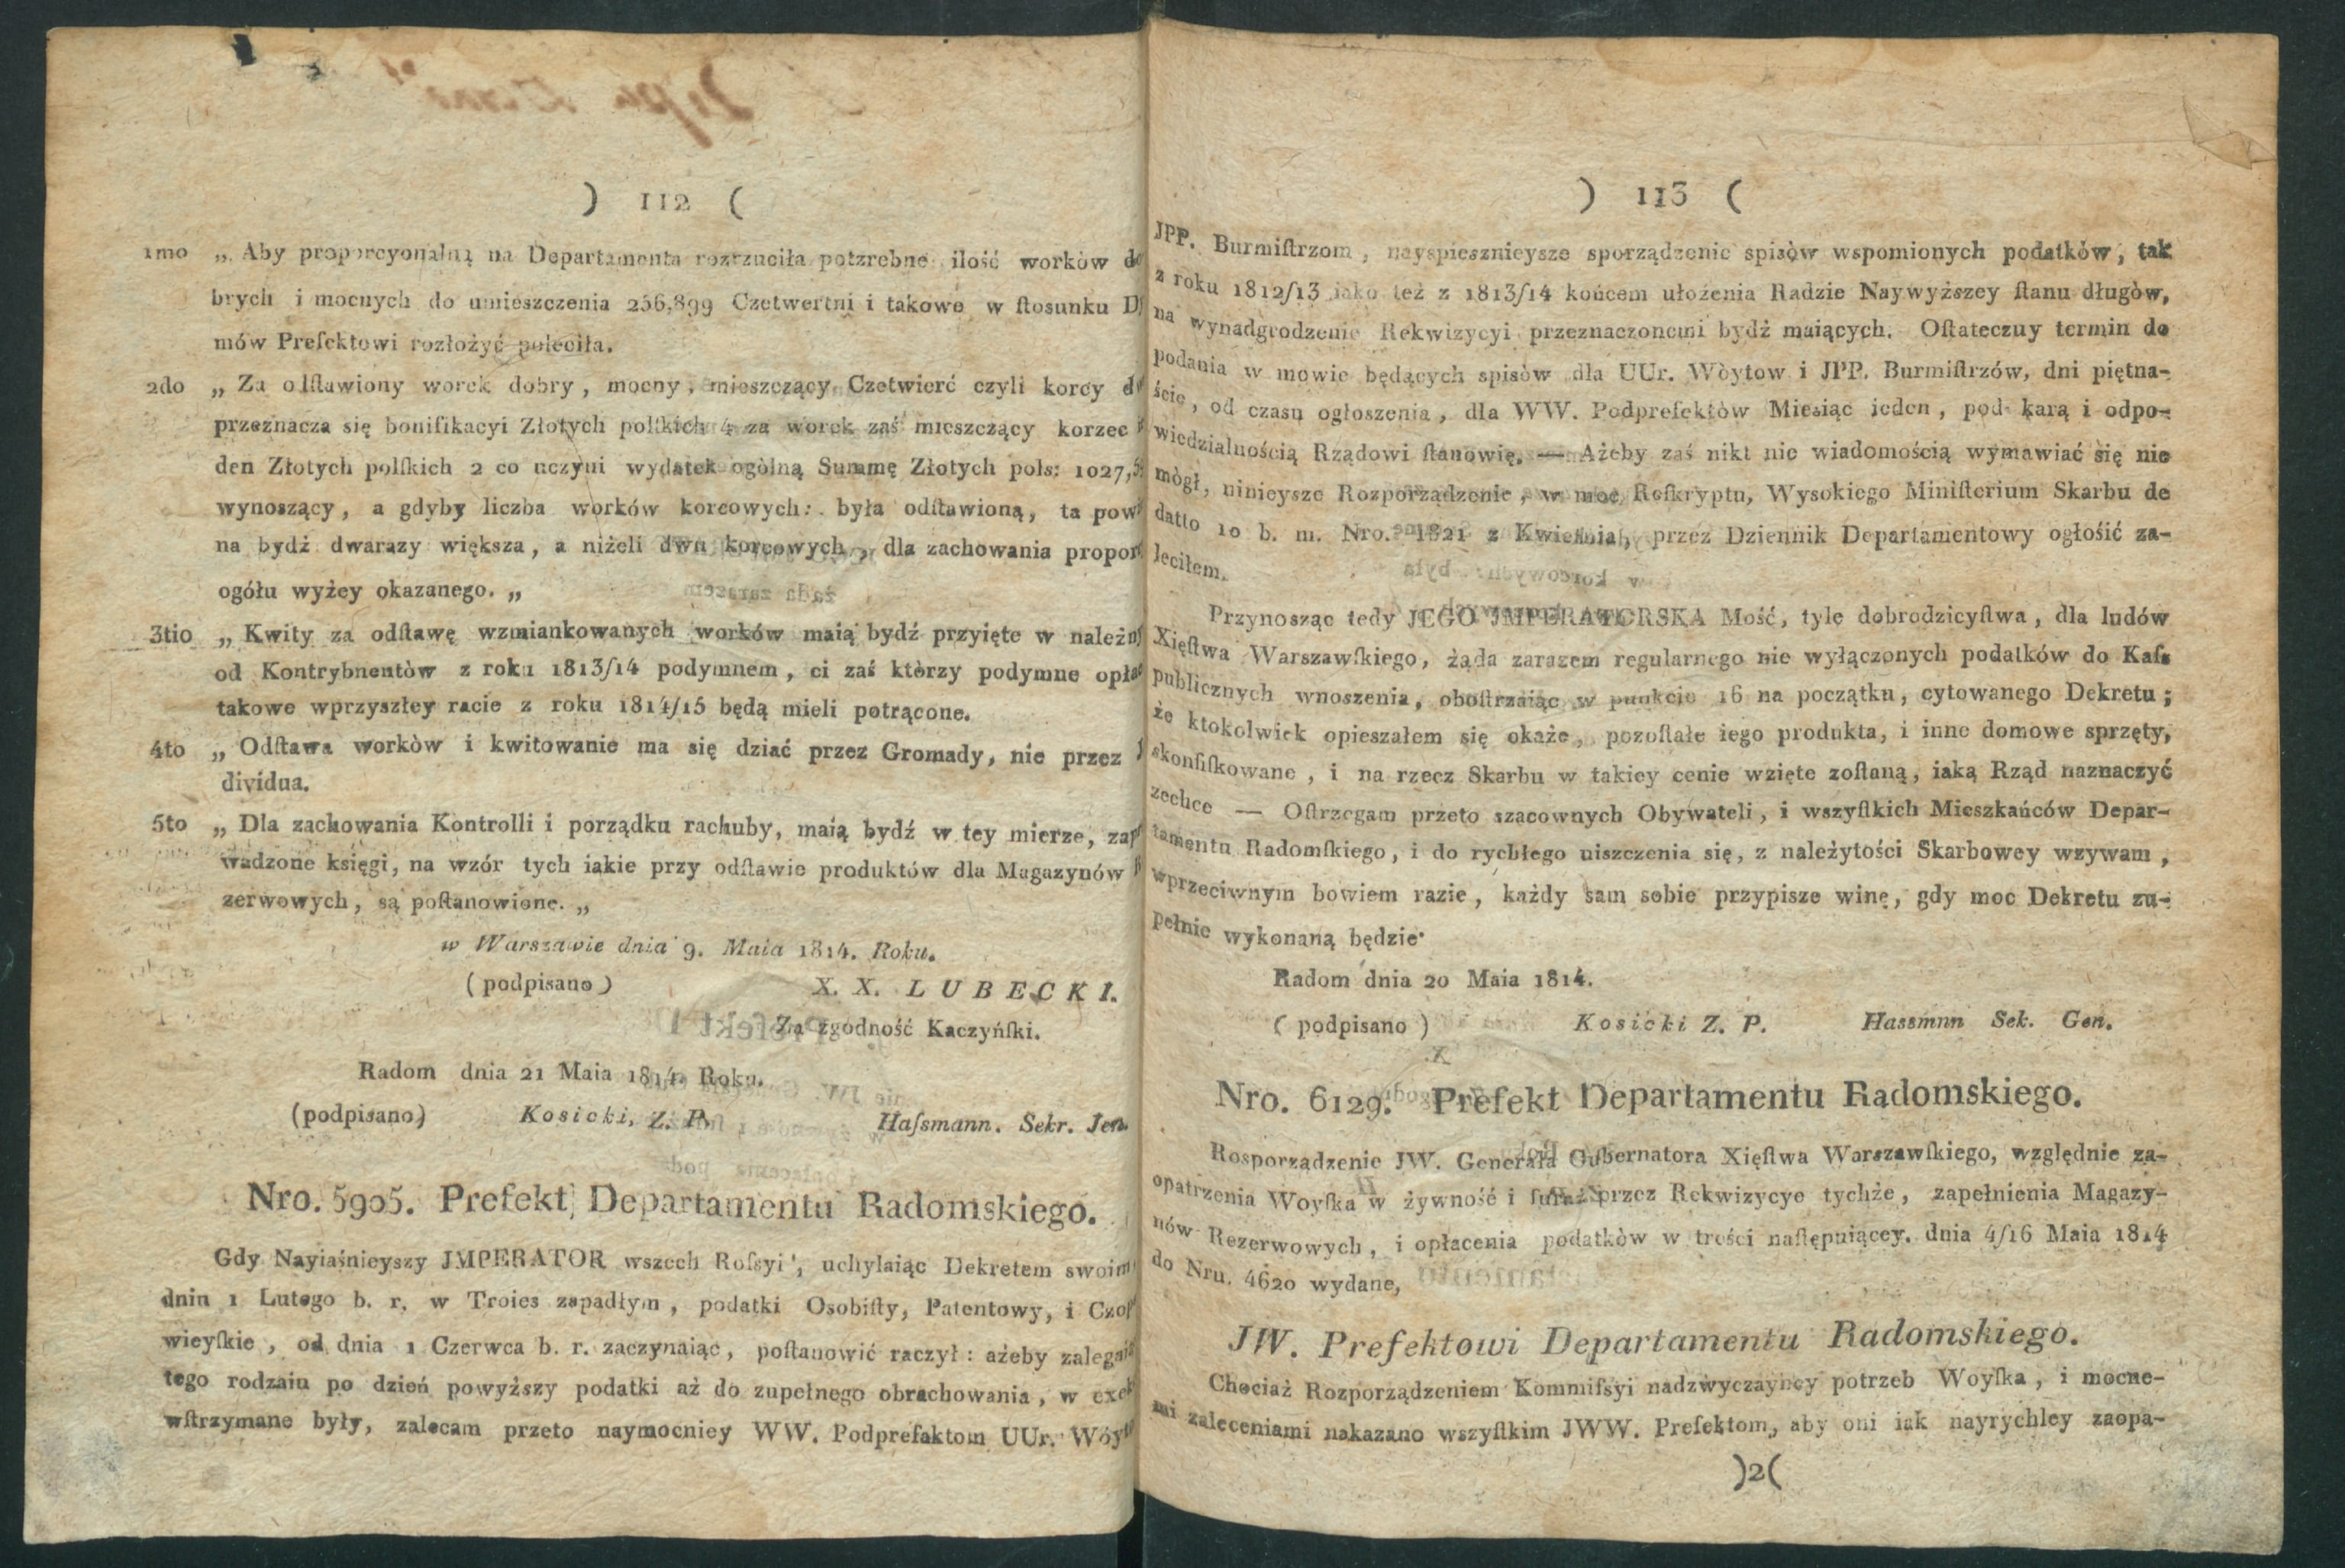 ) 112 (
1mo „ Aby proporcyonalną na Departamenta rozrzuciła potzrebne ilość workòw do
brych i mocnych do umieszczenia 256,899 Czetwertni i takowe w ſtosunku
mów Prefektowi rozłożyć poleciła.
2do „ Za odſtawiony worek dobry , mocny , mieszczący Czetwierć czyli korcy
przeznacza się bonifikacyi Złotych polſkich 4 za worek zaś mieszczący korzec
den Złotych polſkich 2 co uczyni wydatek ogòlną Summę Złotych pols: 1027,
wynoszący , a gdyby liczba worków korcowych : była odſtawioną , ta powi
na bydź dwarazy większa , a niżeli dwu korcowych , dla zachowania propor
ogółu wyżey okazanego. „
3tio „ Kwity za odſtawę wzmiankowanych worków maią bydź przyięte w należn
od Kontrybnentòw z roku 1813/14 podymnem , ci zaś którzy podymne opłac
takowe wprzyszłey racie z roku 1814/15 będą mieli potrącone.
4to „ Odſtawa workòw i kwitowanie ma się dziać przez Gromady, nie przez
dividua.
5to „ Dla zachowania Kontrolli i porządku rachuby, maią bydź w tey mierze, zapr
wadzone księgi, na wzór tych iakie przy odſtawie produktów dla Magazynów
zerwowych , są poſtanowione. „
w Warszawie dnia 9. Maia 1814. Roku.
( podpisano ) X. X. LUBECKI.
Za zgodność Kaczyńſki.
Radom dnia 21 Maia 1814. Roku.
(podpisano) Kosicki, Z. P. Haſsmann. Sekr. Jen.
Nro. 5905. Prefekt Departamentu Radomskiego.
Gdy Nayiaśnieyszy JMPERATOR wszech Roſsyi , uchylaiąc Dekretem swoim
dnia 1 Lutego b. r. w Troies zapadłym , podatki Osobiſty, Patentowy, i Czop
wieyſkie , od dnia 1 Czerwca b. r. zaczynaiąc , poſtanowić raczył : ażeby zalegaią
tego rodzaiu po dzień powyższy podatki aż do zupełnego obrachowania , w exek
wſtrzymane były, zalecam przeto naymocniey WW. Podprefaktom UUr. Wóyto
) 113 (
JPP. Burmiſtrzom , nayspiesznieysze sporządzenie spisòw wspomionych podatkòw , tak
z roku 1812/13 iako też z 1813/14 końcem ułożenia Radzie Naywyższey ſtanu długòw,
na wynadgrodzenie Rekwizycyi przeznaczonemi bydź maiących. Oſtateczuy termin do
podania w mowie będących spisòw dla UUr. Wòytow i JPP. Burmiſtrzów, dni piętna-
ście , od czasu ogłoszenia , dla WW. Podprefektòw Miesiąc ieden , pod karą i odpo-
wiedzialnością Rządowi ſtanowię. — Ażeby zaś nikt nie wiadomością wymawiać się nie
mògł , ninieysze Rozporządzenie , w moc Reſkryptu, Wysokiego Miniſterium Skarbu de
datto 10 b. m. Nro. 1821 z Kwietnia , przez Dziennik Departamentowy ogłośić za-
leciłem.
Przynosząc tedy JEGO JMPERATORSKA Mość, tyle dobrodzieyſtwa , dla ludów
Xięſtwa Warszawſkiego, żąda zarazem regularnego nie wyłączonych podatków do Kaſs
publicznych wnoszenia, oboſtrzaiąc w punkcie 16 na początku, cytowanego Dekretu ;
że ktokolwiek opieszałem się okaże , pozoſtałe iego produkta, i inne domowe sprzęty,
skonfiſkowane , i na rzecz Skarbu w takiey cenie wzięte zoſtaną , iaką Rząd naznaczyć
zechce — Oſtrzegam przeto szacownych Obywateli , i wszyſtkich Mieszkańców Depar-
tamentu Radomſkiego, i do rychłego uiszczenia się, z należytości Skarbowey wzywam ,
wprzeciwnym bowiem razie , każdy sam sobie przypisze winę, gdy moc Dekretu zu-
pełnie wykonaną będzie
Radom dnia 20 Maia 1814.
( podpisano ) Kosicki Z. P. Hassmnn Sek. Gen.
Nro. 6129. Prefekt Departamentu Radomskiego.
Rosporządzenie JW. Generała Gubernatora Xięſtwa Warszawſkiego, względnie za-
opatrzenia Woyſka w żywność i furaż przez Rekwizycye tychże , zapełnienia Magazy-
nów Rezerwowych , i opłacenia podatkòw w treści naſtępuiącey. dnia 4/16 Maia 1814
do Nru. 4620 wydane,
JW. Prefektowi Departamentu Radomskiego.
Chociaż Rozporządzeniem Kommiſsyi nadzwyczayney potrzeb Woyſka , i mocne-
mi zaleceniami nakazano wszyſtkim JWW. Prefektom, aby oni iak nayrychley zaopa-
)2(